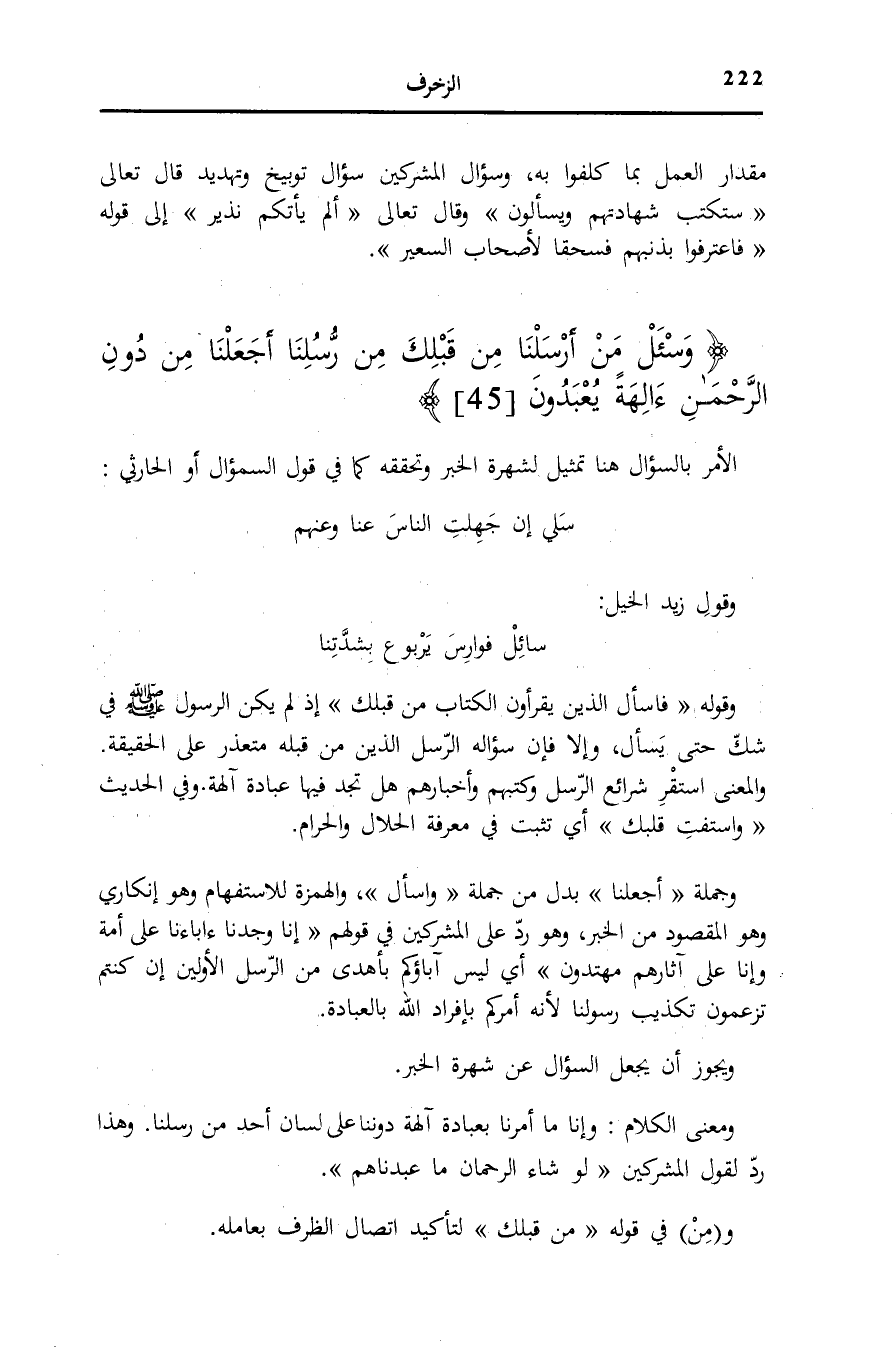 222
الزخرف
مقدار العمل بما كلفوا به، وسؤال المشركين سؤال توبيخ وتهديد قال تعالى
« ستكتب شهادتهم ويسألون » وقال تعالى « ألم يأتكم نذير » إلى قوله
« فاعترفوا بذنبهم فسحقا لأصحاب السعير ».
﴿ وَسْـَٔلْ مَنْ أَرْسَلْنَا مِن قَبْلِكَ مِن رُّسُلِنَا أَجَعَلْنَا مِن دُونِ
الرَّحْمَـٰنِ ءَالِهَةً يُعْبَدُونَ [45] ﴾
الأمر بالسؤال هنا تمثيل لشهرة الخبر وتحققه كما في قول السموْأل أو الحارثي :
سَلي إن جَهِلتِ الناسَ عنا وعنهم
وقولِ زيد الخيل:
سائِلْ فوارِسَ يَرْبوع بِشدَّتِنا
وقوله « فاسأل الذين يقرأون الكتاب من قبلك » إذ لم يكن الرسول ﷺ في
شكّ حتى يَسأل، وإلا فإن سؤاله الرّسل الذين من قبله متعذر على الحقيقة.
والمعنى استقْرِ شرائع الرّسل وكتبهم وأخبارهم هل تجد فيها عبادة آلهة.وفي الحديث
« واستفتِ قلبك » أي تثبت في معرفة الحلال والحرام.
وجملة « أجعلنا » بدل من جملة « واسأل »، والهمزة للاستفهام وهو إنكاري
وهو المقصود من الخبر، وهو ردّ على المشركين في قولهم « إنا وجدنا ءاباءنا على أمة
وإنا على آثارهم مهتدون » أي ليس آباؤكم بأهدى من الرّسل الأولين إن كنتم
تزعمون تكذيب رسولنا لأنه أمركم بإفراد الله بالعبادة.
ويجوز أن يجعل السؤال عن شهرة الخبر.
ومعنى الكلام : وإنا ما أمرنا بعبادة آلهة دوننا على لسان أحد من رسلنا. وهذا
ردّ لقول المشركين « لو شاء الرحمان ما عبدناهم ».
و(مِنْ) في قوله « من قبلك » لتأكيد اتصال الظرف بعامله.